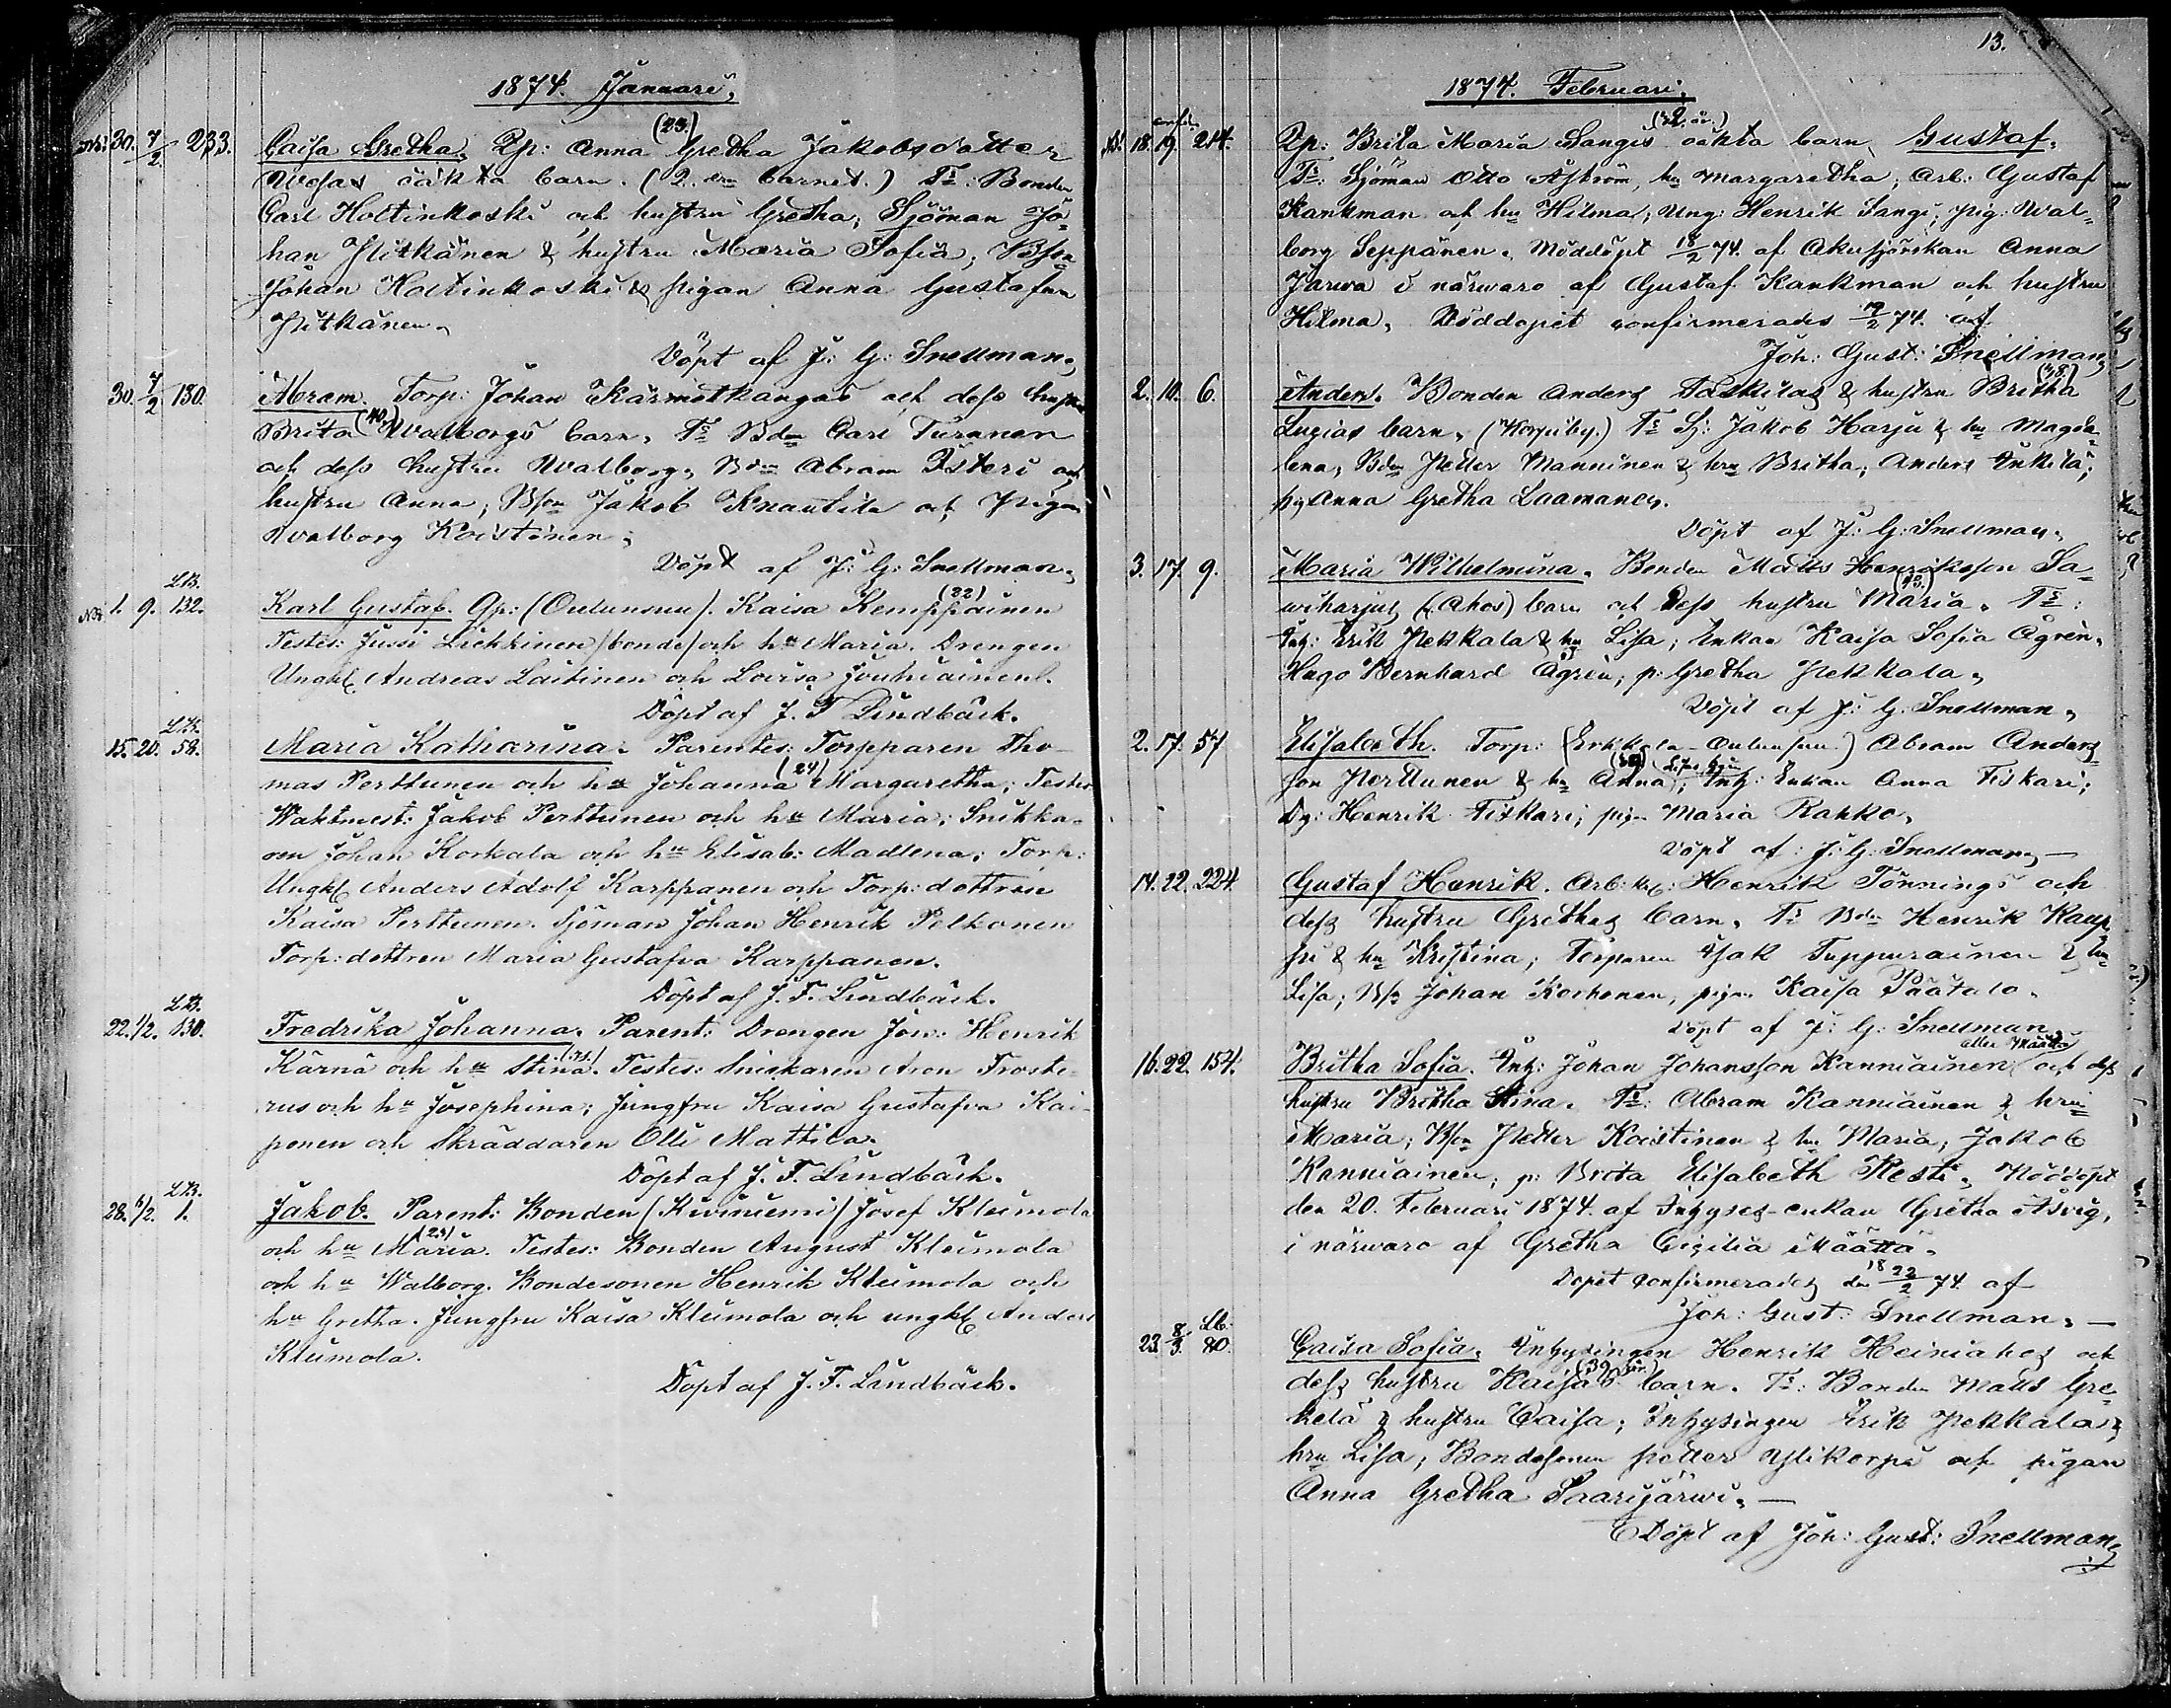 1874. Januari,
Nb: 30. 7/2 233. Caisa Gretha, Qp: Anna (23.) Gretha Jakobsdotter
Wosas oäkta barn. (2. dra barnet.) Ts: Bonden
Carl Holtinkoski och hustru Gretha, Sjöman Jo-
han Pitkänen & hustru Maria Sofia, Bson
Johan Holtinkoski & pigan Anna Gustafva
Pitkänen.
Döpt af J: G: Snellman,
30. 7/2 180. Abram. Torp: Johan Kärmetkangas och dess hustru
Brita (40.) Walborgs barn, Ts Bdn Carl Turanen
och dess hustru Walborg, Bdn Abram och
hustru Anna, Bson Jakob Knautila och Pigan
Walborg Koistinen,
Döpt af J: G: Snellman,
LB.
NB. 1. 9. 132. Karl Gustaf. Qp: (Oulunsuu). Kaisa Kemppainen (22)
Testes: Jussi Liekkinen (bonde) och hu Maria. Drengen
Ungk Andreas Laitinen och Lovisa Jouhiainen.
Döpt af J. F. Lindbäck.
LB.
15. 20. 58. Maria Katharina. Parentes: Torpparen Tho-
mas Perttunen och hu Johanna (24) Margaretha; Testes
Waktmest: Jakob Perttunen och hu Maria; Snikka-
ren Johan Korkala och hu Elisab: Madlena; Torp:
Ungk Anders Adolf Karppanen och Torp: dottren
Kaisa Perttunen. Sjöman Johan Henrik Pelkonen
Torp: dottren Maria Gustafva Karppanen.
Döpt af J. F. Lindbäck.
LB.
22. 1/2. 130. Fredrika Johanna. Parent: Drengen Jon: Henrik
Kärnä och hu Stina. Testes: Snickaren Aron Froste-
rus och hu Josephina; Jungfru Kaisa Gustafva Kai-
ponen och Skräddaren Olli Mattila.
Döpt af J. F. Lindbäck.
LB.
28. 6/2. 1. Jakob. Parent: Bonden (Kiviniemi) Josef Kleimola
och hu Maria (23). Testes: Bonden August Kleimola
och hu Walborg. Bondesonen Henrik Kleimola och
hu Gretha. Jungfru Kaisa Kleimola och ungk Anders
Kleimola.
Döpt af J. F. Lindbäck.
13.
1874. Februari,
18. 19. 214. Qp: Brita Maria Sangis oäkta barn, Gustaf,
Ts: Sjöman Otto Åström, hu Margaretha, Arb: Gustaf
Kankman och hu Hilma, Ung: Henrik Sangi, pig: Wal-
borg Seppänen. Nöddöpt 18/2 74. af Akusjörskan Anna
Jarwa i närwaro af Gustaf Kankman och hustru
Hilma, Nöddopet confirmerades 19/2 74. af
Joh: Gust: Snellman,
2. 10. 6. Anders. Bonden Anders Taskilas & hustru Britha (38.)
Lucias barn, (Korpiby.) Ts Sj: Jakob Harju & hu Magda-
lena, Bdn Petter Manninen & hru Britha, Anders Inkilä,
pig Anna Gretha Laamanen.
Döpt af J: G: Snellman,
3. 17. 9. Maria Wilhelmina. Bonden Matts Henriksson Sa-
wiharjus (Ahos) barn och dess hustru Maria. Ts:
Inh: Erik Pekkala & hu Lisa; Enkan Kaisa Sofia Ågren,
Hugo Bernhard Ågren, p: Gretha Pekkala,
Döpt af J: G: Snellman,
2. 17. 57 Elisabeth. Torp: (Erkkola-Oulunsuu) Abram Anders-
son Perttunen & hu Anna, Inh: Enkan Anna Fiskari;
Dg: Henrik Fiskari; pign Maria Rahko,
Döpt af: J: G: Snellman, —
14. 22. 224. Gustaf Henrik. Arb: k: Henrik Tönnings och
dess hustru Grethas barn, Ts Bdn Henrik Kaup-
pi & hu Kristina; Torparen Isak Tuppurainen & hu
Lisa; Bs Johan Korhonen, pign Kaisa Päätalo.
Döpt af J: G: Snellman,
eller Määttä
16. 22. 154. Britha Sofia. Inh: Johan Johansson Kanniainen och dess
hustru Britha Stina. Ts: Abram Kanniainen & hru
Maria; Bson Petter Koistinen & hu Maria, Jakob
Kanniainen, p: Brita Elisabeth Resti, Nöddöpt
den 20. Februari 1874. af Inhyses-enkan Gretha Åsvig,
i närwaro af Gretha Cicilia Määttä.
Dopet confirmerades den 22/2 18 74. af
Joh: Gust: Snellman, —
Lb.
23. 8/3. 80. Caisa Sofia. Inhysingen Henrik Heiniahos och
dess hustru Kaisas (39 år.) barn. Ts: Bonden Matts Gre-
kelä & hustru Caisa; Inhysingen Erik Pekkala &
hru Lisa, Bondesonen Petter Ylikorpi och pigan
Anna Gretha Saarijärwi, —
Döpt af Joh: Gust: Snellman,